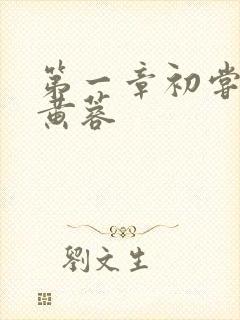 第一章初嘗
黄蓉
劉文生